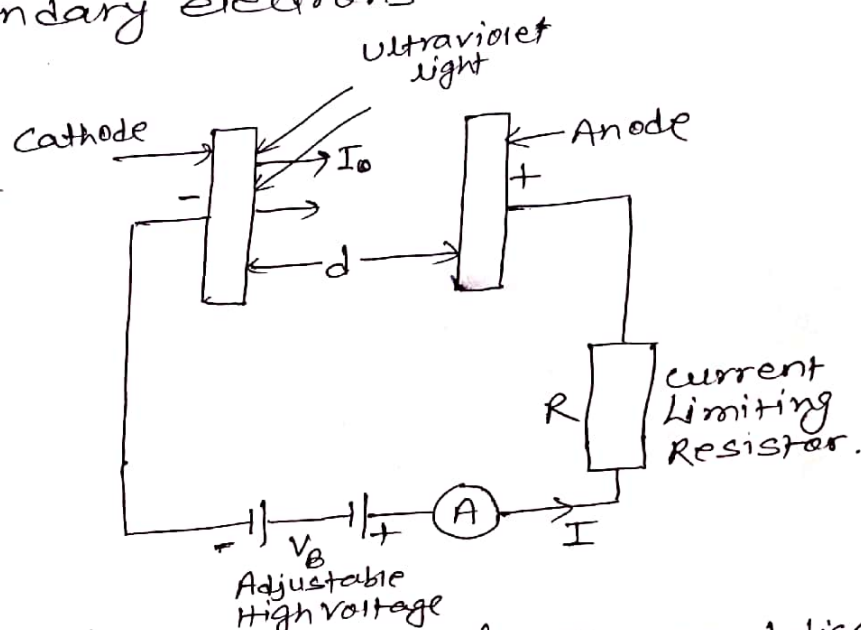 ndary electrons
Ultraviolet
light
Cathode
Anode
I₀
+
-
d
R
current
Limiting
Resistor.
A
I
-
V_B
+
Adjustable
High voltage